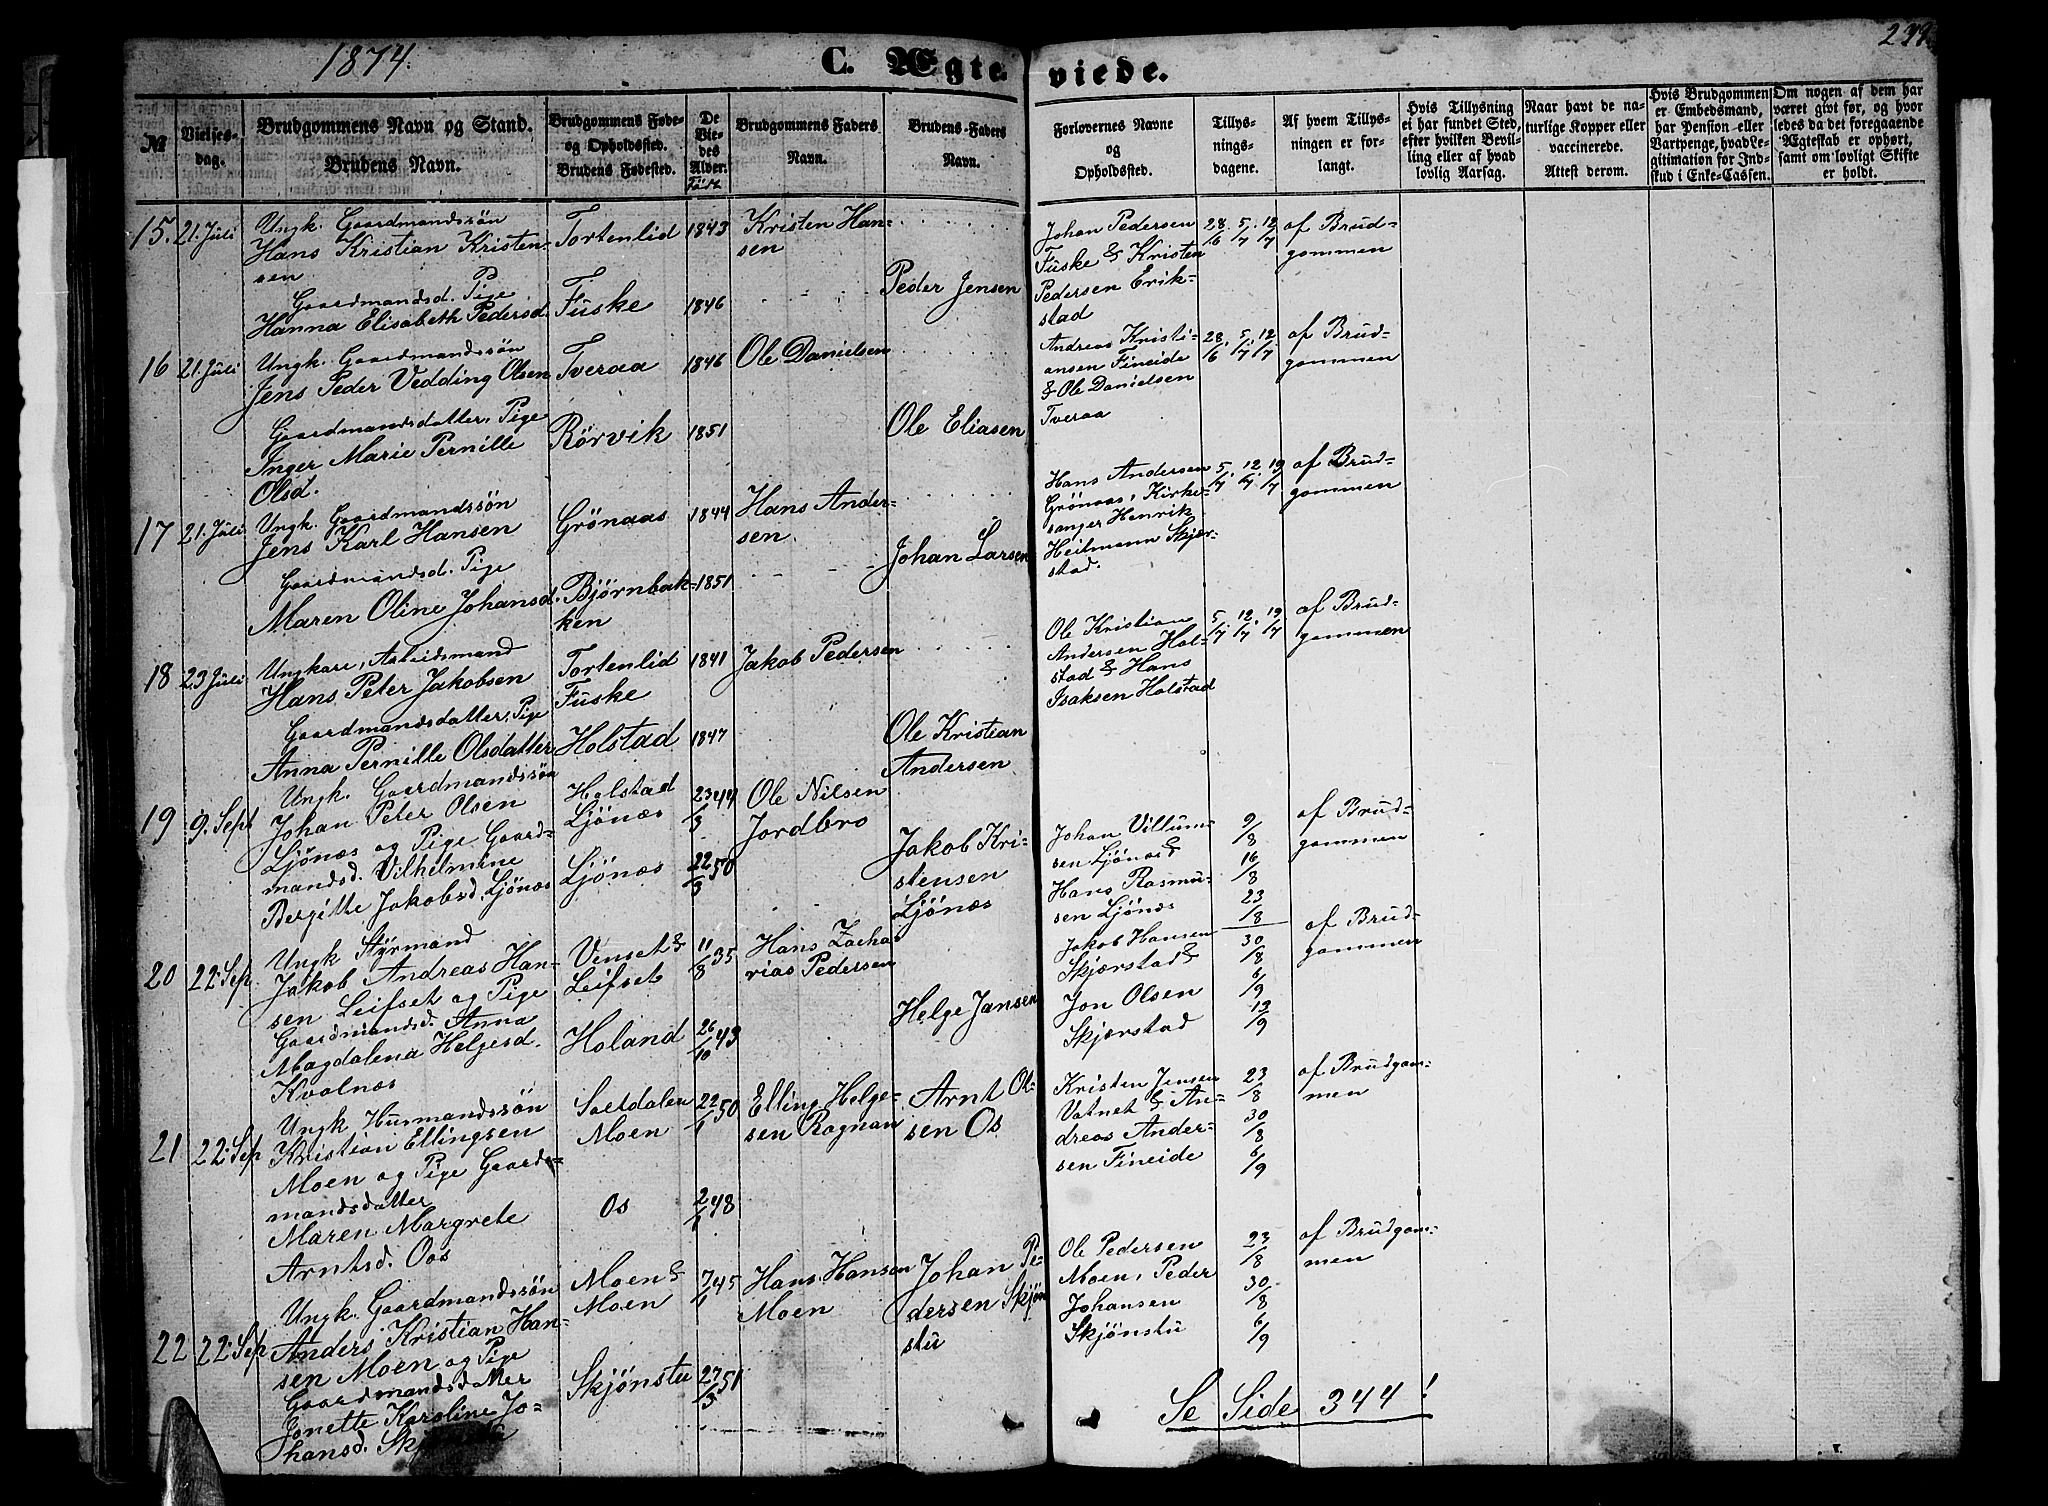 1874.
C. Ægte-
viede.
No
Vielses-
dag.
Brudgommens Navn og Stand.
Brudens Navn.
Brudgommens Føde-
og Opholdsted.
Brudens Fødested.
De
Vie-
des
Alder.
Födt
Brudgommens Faders
Navn.
Brudens Faders
Navn.
Forlovernes Navne
og
Opholdssted.
Tillys-
nings-
dagene.
Af hvem Tillys-
ningen er for-
langt.
Hvis Tillysning
ei har fundet Sted,
efter hvilken Bevil-
ling eller af hvad
lovlig Aarsag.
Naar havt de na-
turlige Kopper eller
vaccinerede.
Attest derom.
Hvis Brudgommen
er Embedsmand,
har Pension eller
Vartpenge, hvad Le-
gitimation for Ind-
skud i Enke-Cassen.
Om nogen af dem har
været givt før, og hvor
ledes da det foregaaende
Ægteskab er ophørt,
samt om lovligt Skifte
er holdt.
15. 21. Juli
Ungk. Gaardmandssön
Hans Kristian Kristen-
sen
Tortenlid
1843
Kristen Han-
sen
Gaardmandsd. Pige
Hanna Elisabeth Pedersd.
Fuske
1846
Peder Jensen
Johan Pedersen
Fuske & Kristen
Pedersen Erik-
stad
28/6. 5/7. 12/7
af Brud-
gommen
16 21. Juli
Ungk. Gaardmandssön
Jens Peder Vedding Olsen
Tveraa
1846
Ole Danielsen
Gaardmandsdatter, Pige
Inger Marie Pernille
Olsd.
Rörvik
1851
Ole Eliasen
Andreas Kristi-
ansen Fineide
& Ole Danielsen
Tveraa
28/6. 5/7. 12/7
af Brud-
gommen
17 21. Juli
Ungk. Gaardmandssön
Jens Karl Hansen
Grönaas
1844
Hans Ander-
sen
Gaardmandsd. Pige
Maren Oline Johansd.
Bjørnbak-
ken
1851
Johan Larsen
Hans Andersen
Grönaas, Kirke-
sanger Henrik
Heitmann Skjær-
stad.
5/7. 12/7. 19/7
af Brud-
gommen
18 23 Juli
Ungkare, Arbeidsmand
Hans Peter Jakobsen
Tortenlid
Fuske
1841
Jakob Pedersen
Gaardmandsdatter, Pige
Anna Pernille Olsdatter
Holstad
1847
Ole Kristian
Andersen
Ole Kristian
Andersen Hol-
stad & Hans
Isaksen Holstad
5/7. 12/7. 19/7
af Brud-
gommen
19 9. Sept
Ungk. Gaardmandssön
Johan Peter Olsen
Ljönæs og Pige Gaard-
mandsd. Vilhelmine
Bergitte Jakobsd. Ljönæs
Holstad
Ljönæs
Ljönæs
23/3 44
22/3 50
Ole Nilsen
Jordbro
Jakob Kri-
stensen
Ljönæs
Johan Villum-
sen Ljönæs &
Hans Rasmu-
sen Ljönæs
9/8
16/8
23/8
af Brud-
gommen
20 22. Sep.
Ungk Styrmand
Jakob Andreas Han-
sen Leifset og Pige
Gaardmandsd. Anna
Magdalena Helgesd.
Kvalnæs
Venset &
Leifset
Holand
11/8 35
26/10 43
Hans Zacha-
rias Pedersen
Helge Jansen
Jakob Hansen
Skjærstad &
Jon Olsen
Skjærstad
30/8
6/9
13/9
af Brud-
gommen
21 22. Sep
Ungk Husmandssön
Kristian Ellingsen
Moen og Pige Gaard-
mandsdatter
Maren Margrete
Arntsd. Oos
Saltdalen
Moen
Os
22/1 50
2/1 48
Elling Helge-
sen Rognan
Arnt Ol-
sen Os
Kristen Jensen
Vatnet & An-
dreas Ander-
sen Fineide
23/8
30/8
6/9
af Brudgom-
men
22 22. Sep
Ungk. Gaardmandssön
Anders Kristian Han-
sen Moen og Pige
Gaardmandsd Mer
Jonette Karoline Jo-
hansd.
Moen &
Moen
Skjönstu
7/1 45
27/3 51
Hans Hansen
Moen
Johan Pe-
dersen Skjön
stu
Ole Pedersen
Moen, Peder
Johansen
Skjönstu
23/8
30/8
6/9
af Brudgom-
men
Se Side 344!